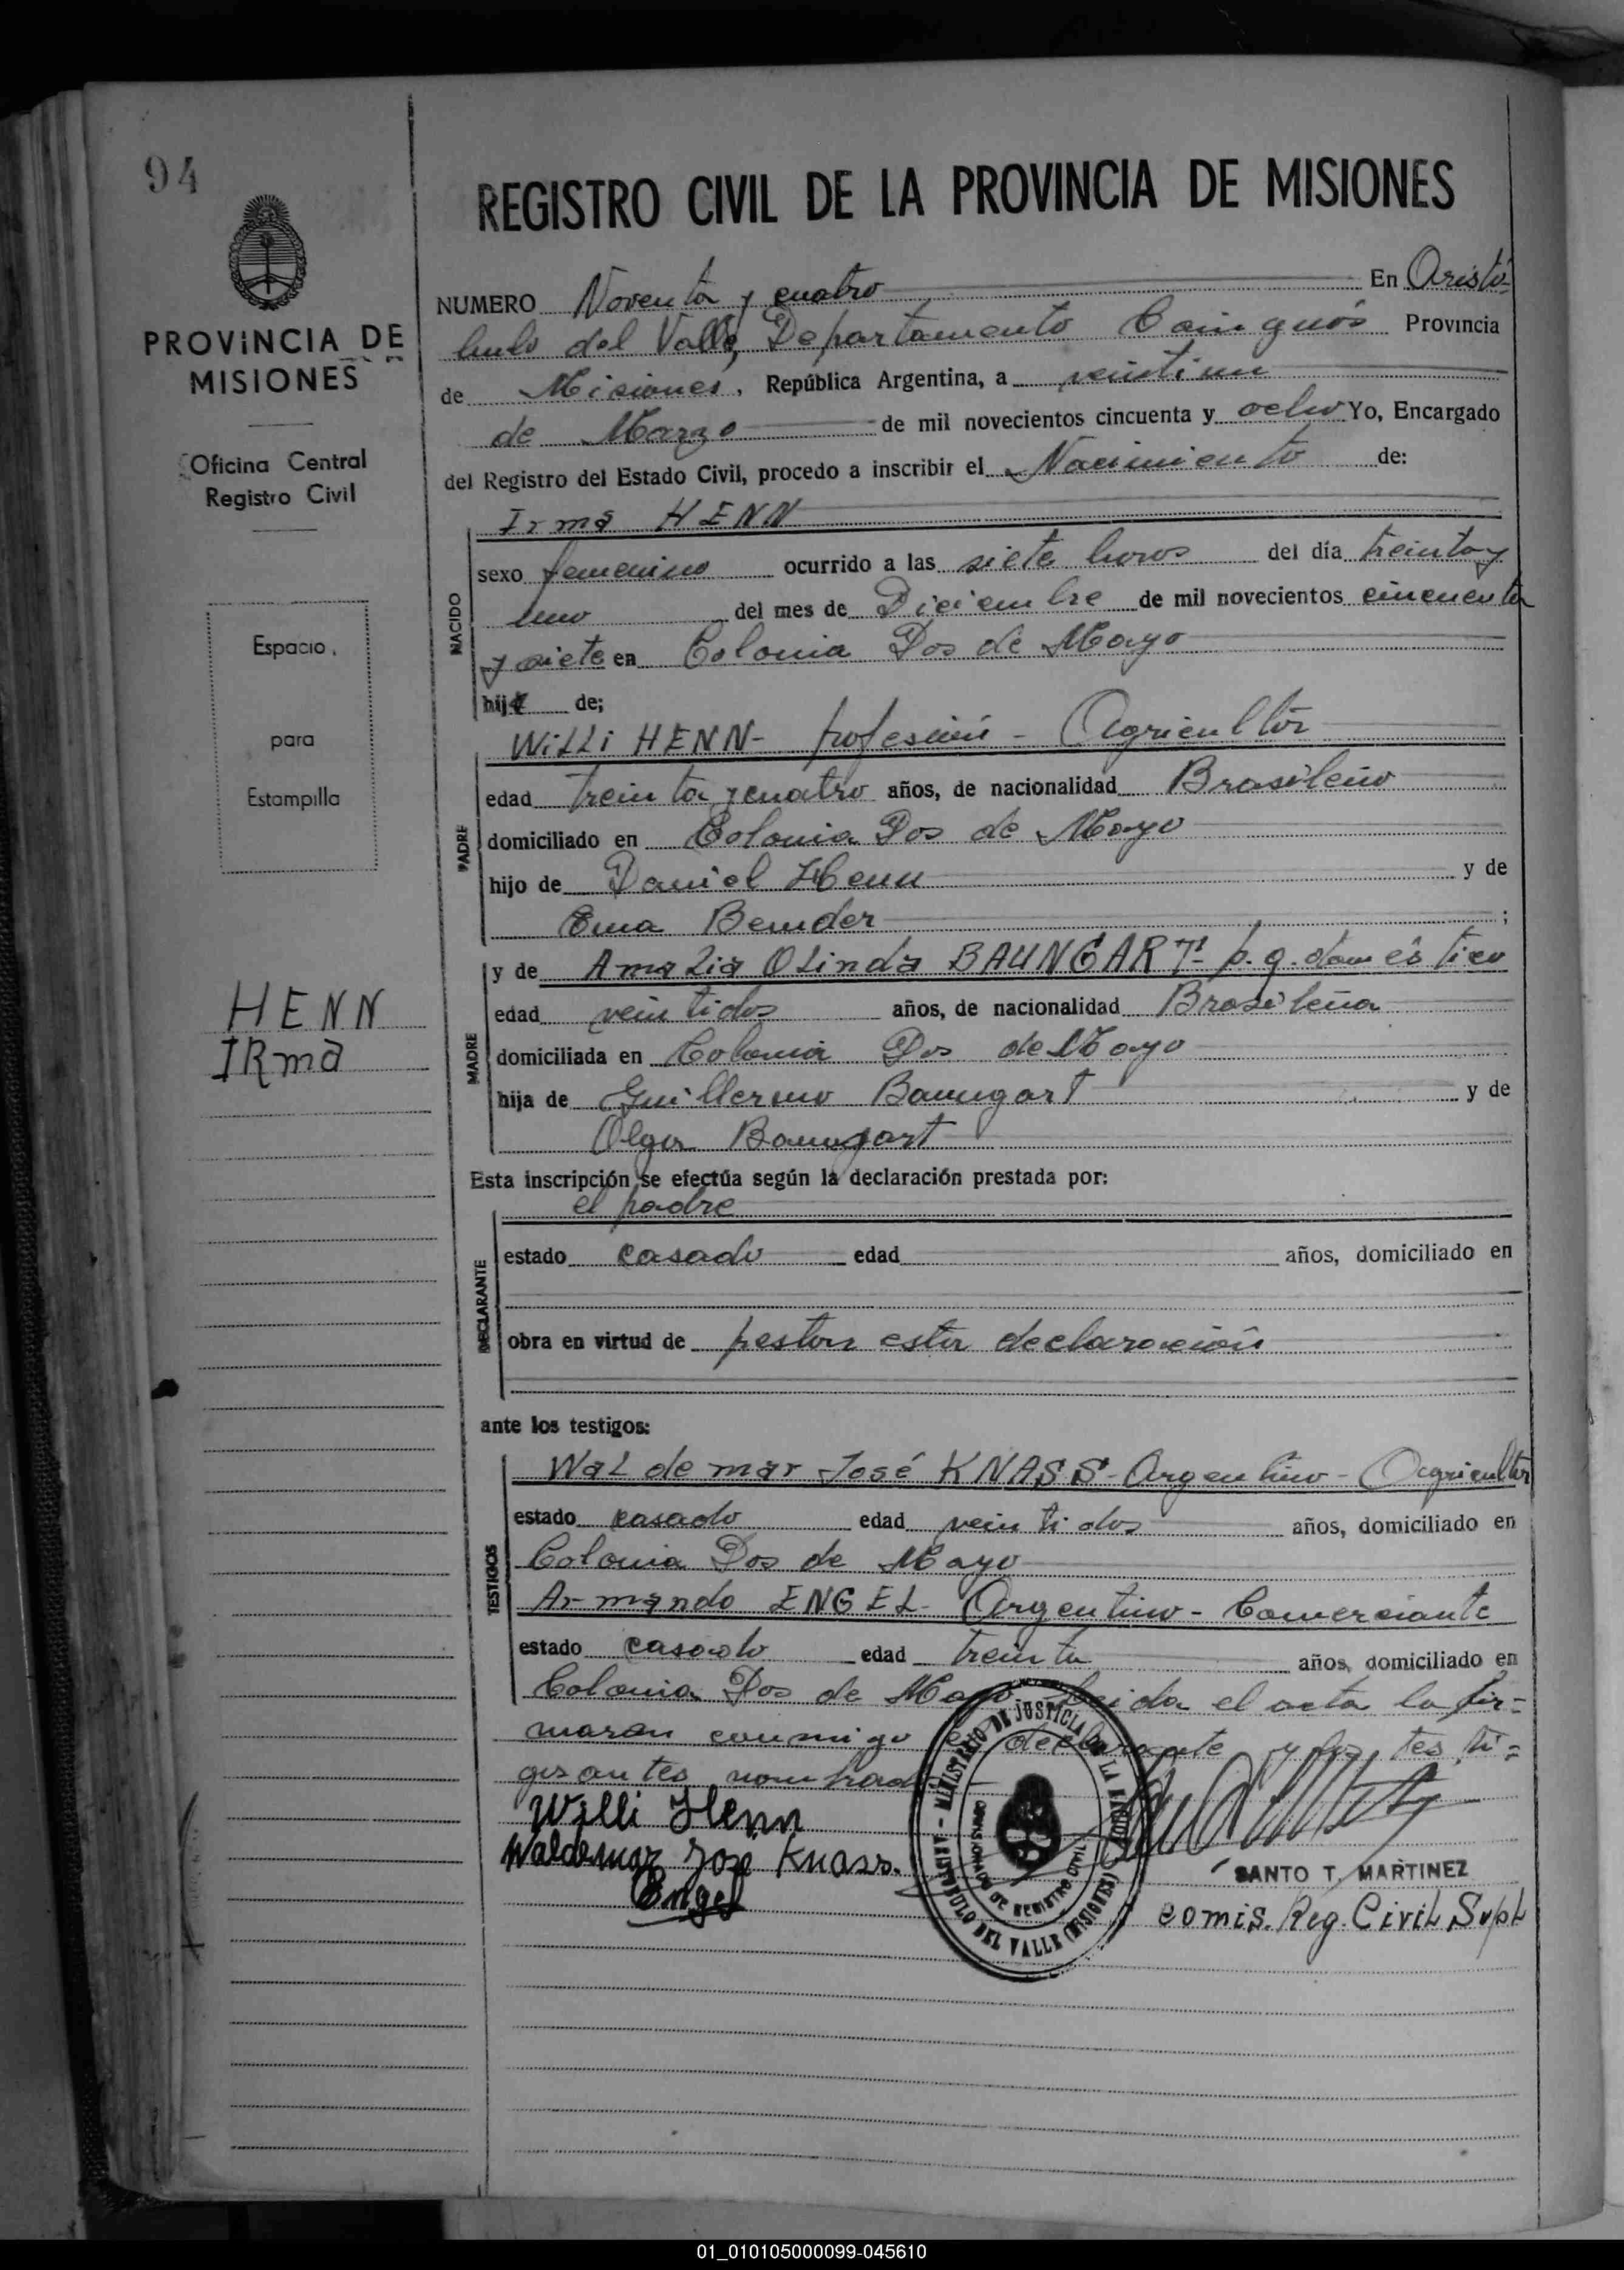 94
PROVINCIA DE
MISIONES
Oficina Central
Registro Civil
Espacio
para
Estampilla
HENN
IRma
REGISTRO CIVIL DE LA PROVINCIA DE MISIONES
NUMERO Noventa y cuatro En Aristó-
bulo del Valle, Departamento Cainguás Provincia
de Misiones, República Argentina, a veintiun
de Marzo de mil novecientos cincuenta y ocho Yo, Encargado
del Registro del Estado Civil, procedo a inscribir el Nacimiento de:
Irma HENN
NACIDO
sexo femenino ocurrido a las siete horas del día treinta y
uno del mes de Diciembre de mil novecientos cincuenta
y siete en Colonia Dos de Mayo
hija de;
PADRE
Willi HENN- profesión - Agricultor
edad treinta y cuatro años, de nacionalidad Brasileño
domiciliado en Colonia Dos de Mayo
hijo de Daniel Henn y de
Ema Bender;
MADRE
y de Amalia Olinda BAUNGART- p. q. doméstico
edad veintidos años, de nacionalidad Brasileña
domiciliada en Colonia Dos de Mayo
hija de Guillermo Baumgart y de
Olga Baumgart
Esta inscripción se efectúa según la declaración prestada por:
el padre
DECLARANTE
estado casado edad años, domiciliado en
obra en virtud de pestar esta declaración
ante los testigos:
TESTIGOS
Waldemar José KNASS- Argentino - Agricultor
estado casado edad veintidos años, domiciliado en
Colonia Dos de Mayo
Armando ENGEL- Argentino - Comerciante
estado casado edad treinta años, domiciliado en
Colonia Dos de Mayo Leida el acta la fir=
maron conmigo el declarante y los testi=
gos antes nombrad
Willi Henn
Waldemar José Knass.
Engel
MINISTERIO DE JUSTICIA DE LA
ARISTOBULO DEL VALLE (MISIONES)
COMISIONADO DE REGISTRO CIVIL
SANTO T. MARTINEZ
comis. Reg. Civil Supl
01_010105000099-045610